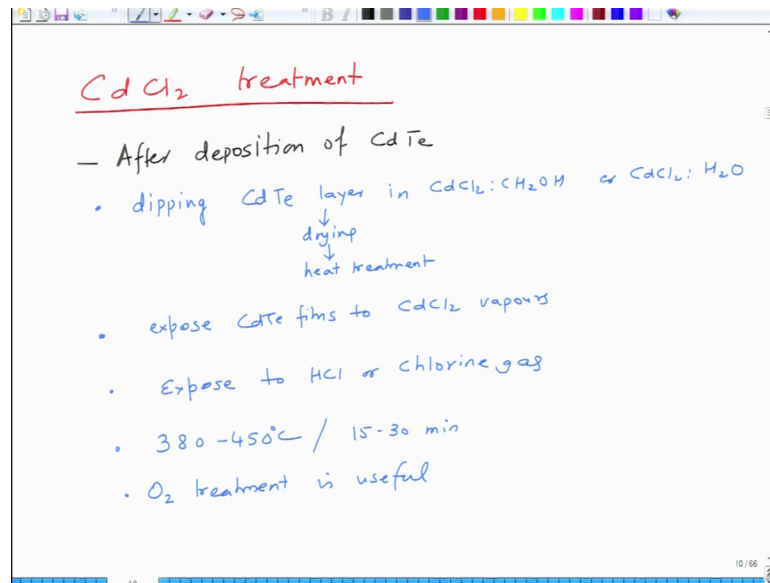 CdCl₂ treatment
— After deposition of CdTe
• dipping CdTe layer in CdCl₂:CH₂OH or CdCl₂:H₂O
↓
drying
↓
heat treatment
• expose CdTe films to CdCl₂ vapours
• Expose to HCl or Chlorine gas
• 380-450°C / 15-30 min
• O₂ treatment is useful
10 / 66